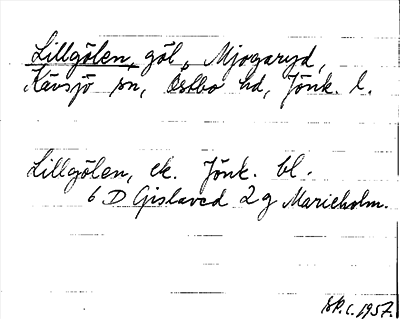 Lillgölen, göl, Mjogaryd,
Kävsjö sn, Östbo hd, Jönk. l.
Lillgölen, ek. Jönk. bl.
6 D Gislaved 2 g Marieholm.
1957.